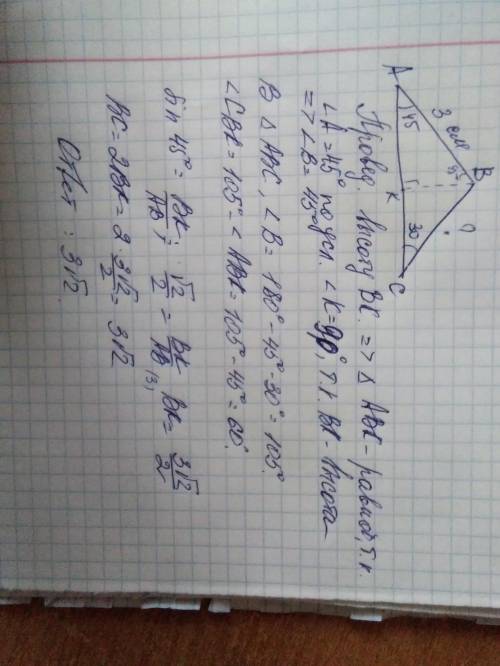 A 45 3 см B 45 ? K 30 C
Провед. высоту BK. => △ ABK - равноб, т.к.
∠A = 45° по усл. ∠K = 90°, т.к. BK - высота
=> ∠B = 45°
В △ ABC, ∠B = 180° - 45° - 30° = 105°.
∠CBK = 105° - ∠ABK = 105° - 45° = 60°.
sin 45° = BK/AB ; √2/2 = BK/AB (3) BK = 3√2/2
BC = 2BK = 2 · 3√2/2 = 3√2
Ответ : 3√2.